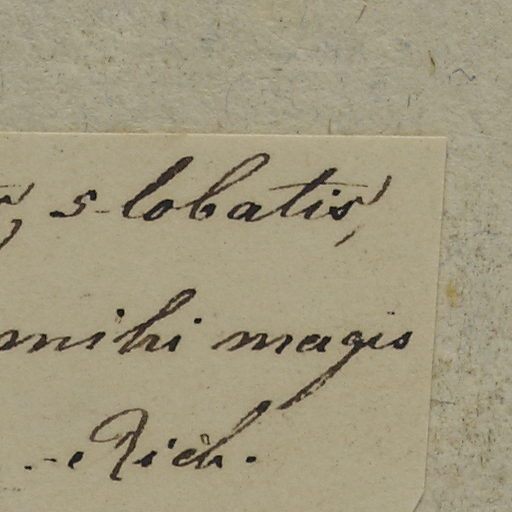 5-lobatis,
mihi magis
Rich.